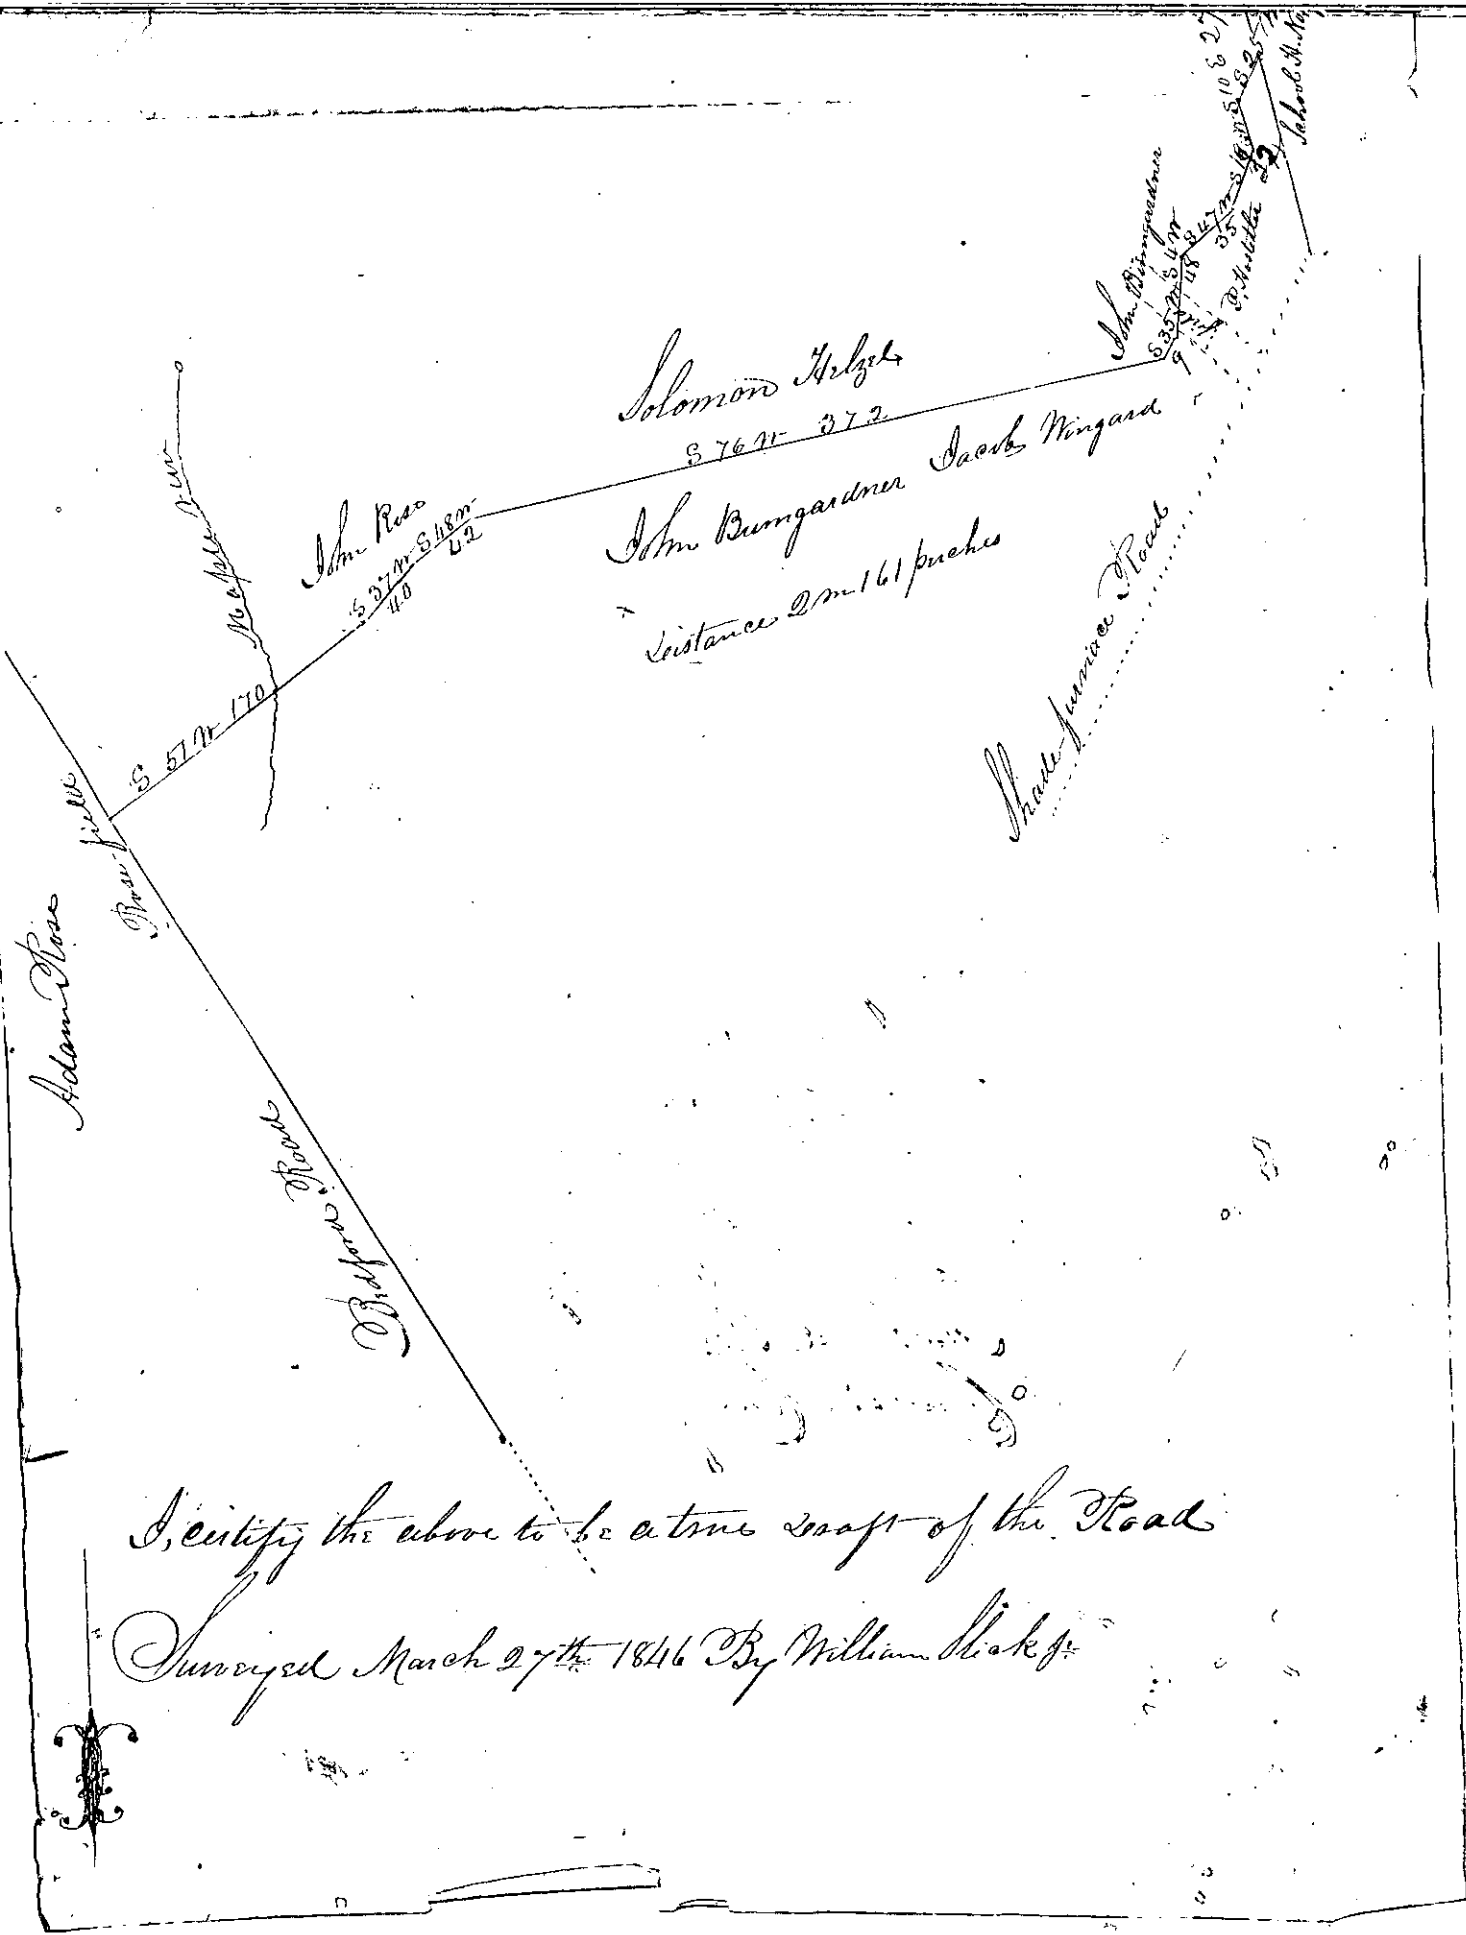 S 10 E 27
S 25
School H. No
S 18 W
12
S 47 W
35
D. Hostetler
John Bumgardner
S 4 W
48
S 35 W
9
field
Solomon Helzel
S 76 W 372
John Bumgardner Jacob Wingard
Distance 2 m 161 perches
Shade furnace Road
John Rose
S 48 W
42
S 37 W
40
Maple run
S 57 W 170
Rose field
Adam Rose
Bedford Road
I, certify the above to be a true Draft of the Road
Surveyed March 27th 1846 By William Slick Jr